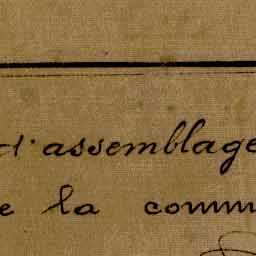 d'assemblage
e la comm